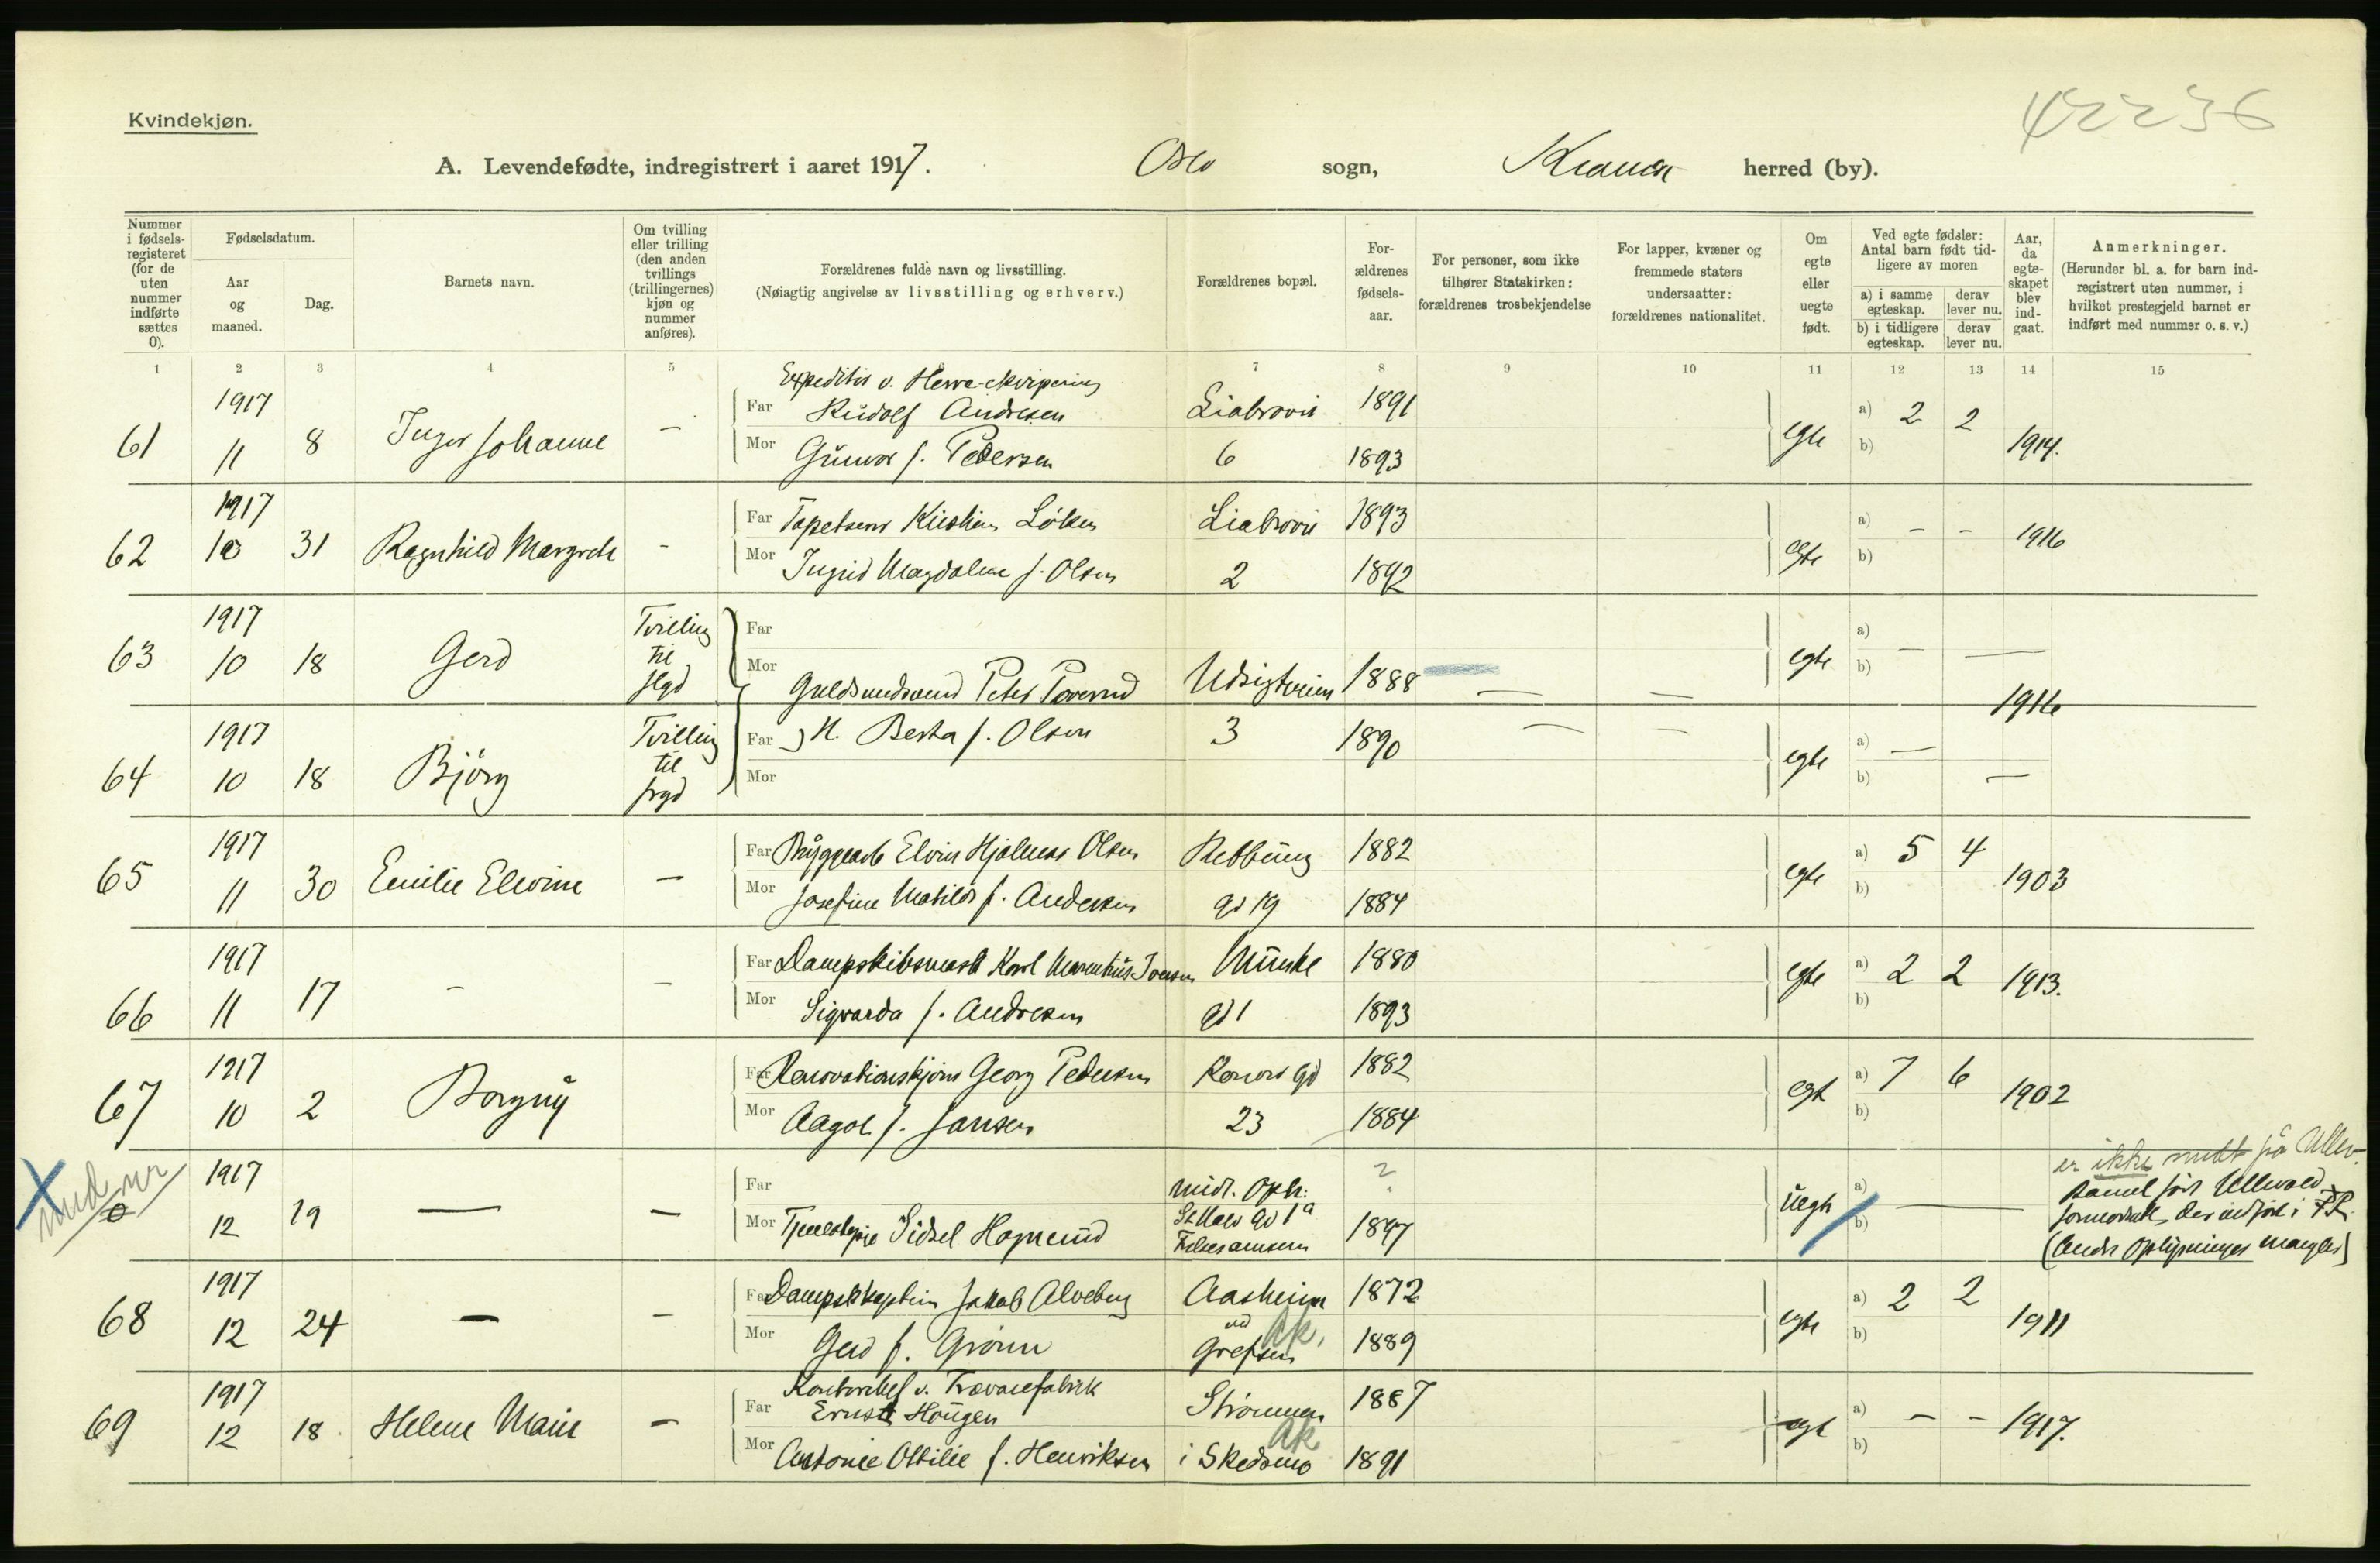 Kvindekjøn.
42236
A. Levendefødte, indregistrert i aaret 1917. Oslo sogn, Kra herred (by).
Nummer i fødselsregisteret (for de uten nummer indførte sættes 0).
Fødselsdatum.
Aar og maaned.
Dag.
Barnets navn.
Om tvilling eller trilling (den anden tvillings (trillingernes) kjøn og nummer anføres).
Forældrenes fulde navn og livsstilling.
(Nøiagtig angivelse av livsstilling og erhverv.)
Forældrenes bopæl.
Forældrenes fødselsaar.
For personer, som ikke tilhører Statskirken: forældrenes trosbekjendelse
For lapper, kvæner og fremmede staters undersaatter: forældrenes nationalitet.
Om egte eller uegte født.
Ved egte fødsler: Antal barn født tidligere av moren
a) i samme egteskap.
derav lever nu.
b) i tidligere egteskap.
derav lever nu.
Aar, da egteskapet blev indgaat.
Anmerkninger.
(Herunder bl. a. for barn indregistrert uten nummer, i hvilket prestegjeld barnet er indført med nummer o. s. v.)
1 2 3 4 5 7 8 9 10 11 12 13 14 15
61 1917 11 8 Inger Johanne —
Expeditør v. Herre-ekvipering
Far Rudolf Andresen Liabrovei 1891
Mor Gunvor f. Pedersen 6 1893
egte a) 2 2 b) 1914.
62 1917 10 31 Ragnhild Margrete -
Far Tapetserer Kristian Löken Liabrovei 1893
Mor Ingrid Magdalene f. Olsen 2 1892
egte a) - - b) 1916
63 1917 10 18 Gerd Tvilling til flgd
Far
Mor
Guldsmedsvend Peter 1888 — —
egte a) b) — — 1916
64 1917 10 18 Björg Tvilling til frgd
Far H. Berta f. Olsen 3 1890 — —
Mor
egte a) — b) —
65 1917 11 30 Emilie Elvine —
Far Bryggearb Elvin Hjalmar Olsen 1882
Mor Josefine Matilde f. Andersen gd 19 1884
egte a) 5 4 b) 1903
66 1917 11 17 - -
Far Dampskibsmask Karl Iversen Munke 1880
Mor Sigvarda f. Andresen gd 1 1893
egte a) 2 2 b) 1913.
67 1917 10 2 Borgny
Far Renovationskjörer Georg Pedersen gd 1882
Mor Aagot f. Jansen 23 1884
egte a) 7 6 b) 1902
X
0 1917 12 19 — —
Far midl. Oph: ?
Mor Tjenestepige Sidsel 1a 1897
uegte a) b) —
er ikke på Ullev.
født Ullevold
der indført i FR.
(Andre Oplysninger mangler)
68 1917 12 24 — —
Far Dampskkaptein Jakob Alveberg Aasheim 1872
Mor Gerd f. Grönn ved Grefsen Ak. 1889
egte a) 2 2 b) 1911
69 1917 12 18 Helene Marie —
Kontorchef v. Trævarefabrik
Far Ernst Hougen Strömmen 1887
Mor Antonie Ottilie f. Henriksen i Skedsmo Ak 1891
egte a) - - b) 1917.